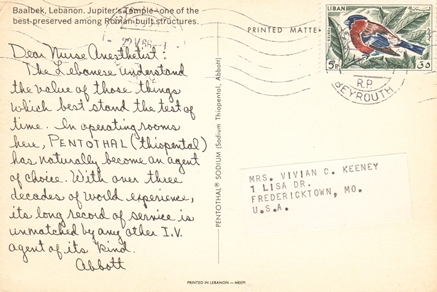 Baalbek, Lebanon. Jupiter's Temple-one of the
best-preserved among Roman-built structures.
PRINTED MATTER
LIBAN
5P
30
R.P.
BEYROUTH
Dear Nurse Anesthetist:
The Lebanese understand
the value of those things
which best stand the test of
time. In operating rooms
here, PENTOTHAL (thiopental)
has naturally become an agent
of choice. With over three
decades of world experience,
its long record of service is
unmatched by any other I.V.
agent of its kind.
Abbott
PENTOTHAL® SODIUM (Sodium Thiopental, Abbott)
MRS. VIVIAN C. KEENEY
1 LISA DR.
FREDERICKTOWN, MO.
U.S.A.
PRINTED IN LEBANON —